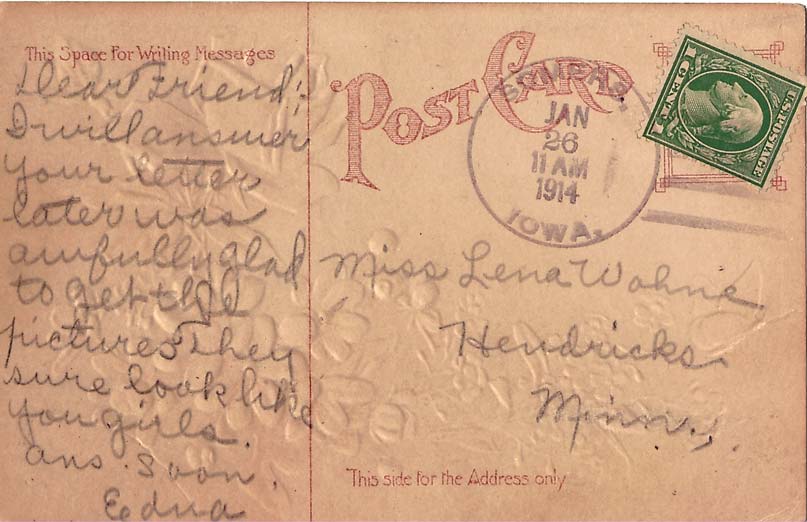 This Space For Writing Messages
Dear Friend:
I will answer
your letter
later was
awfully glad
to get the
pictures They
sure look like
you girls.
ans. soon.
Edna
POST CARD
JAN
26
11 AM
1914
IOWA.
U.S. POSTAGE
1 CENT 1
Miss Lena Wohne
Hendricks
Minn.,
This side for the Address only